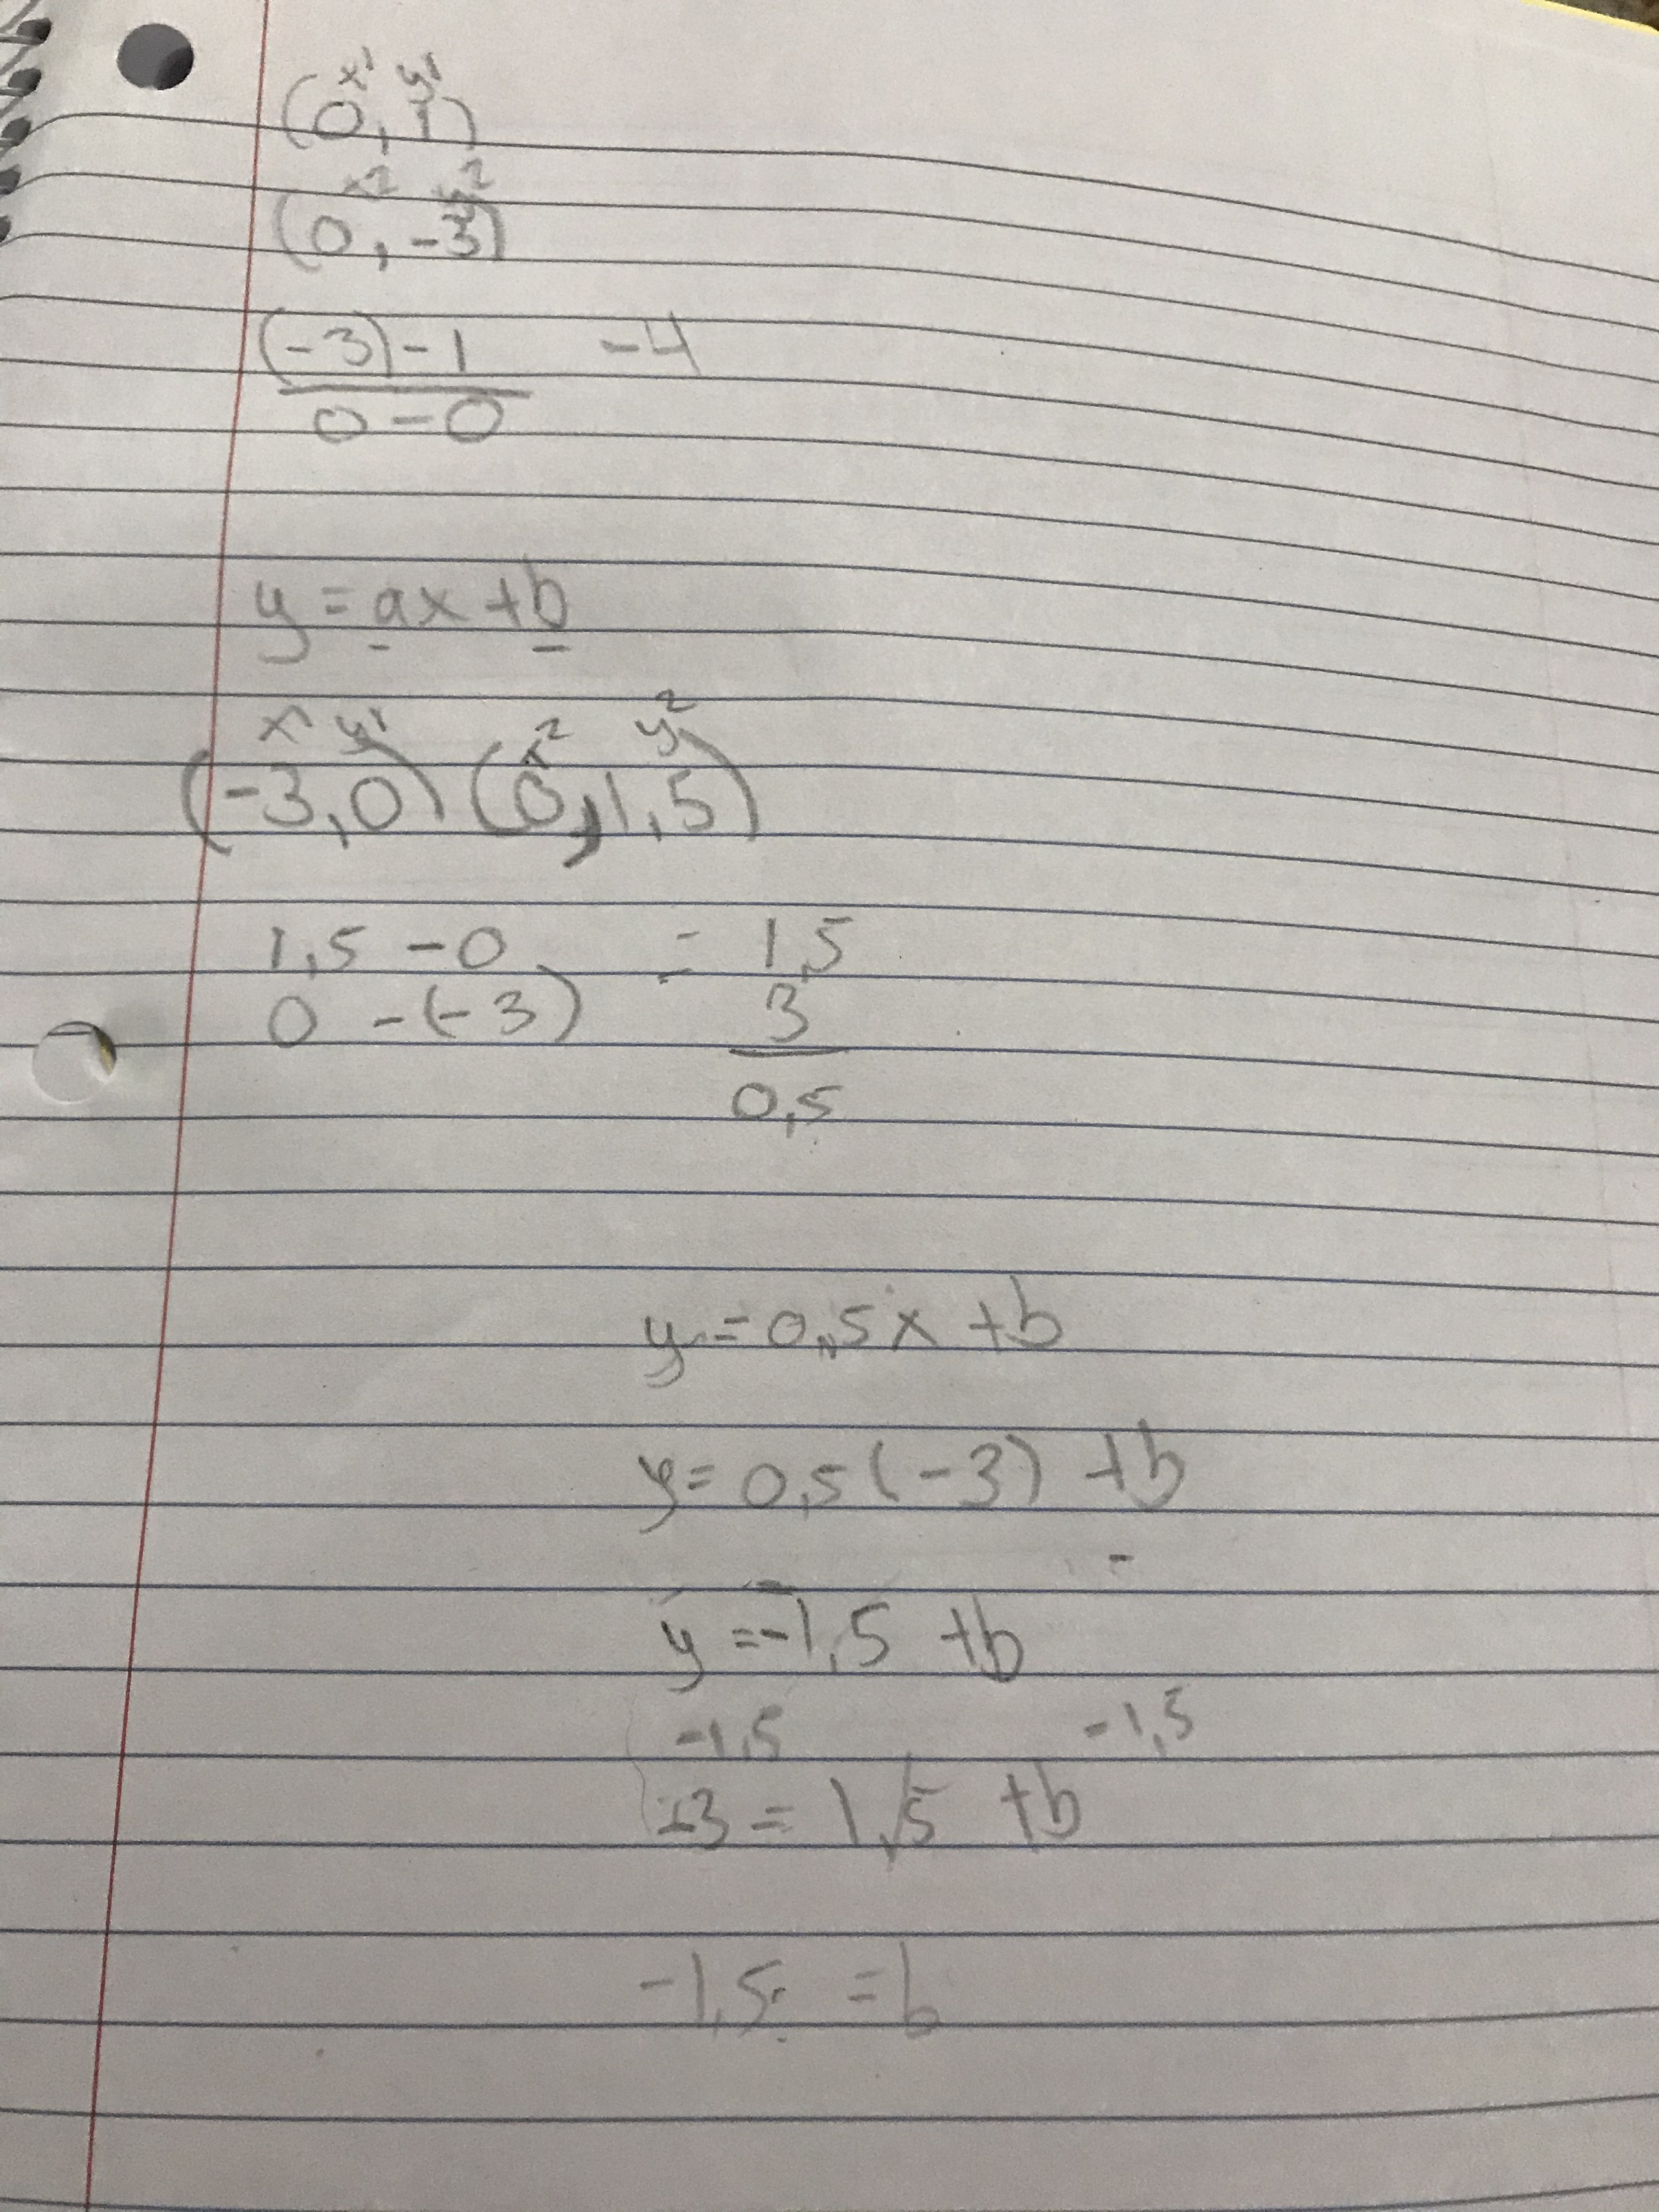 x1 y1
(0, 1)
x2 y2
(0, -3)
(-3) - 1 -4
0 - 0
y = ax + b
x1 y1 x2 y2
(-3, 0) (0, 1,5)
1,5 - 0 = 1,5
0 - (-3) 3
0,5
y = 0,5x + b
y = 0,5(-3) + b
-
y = -1,5 + b
-1,5 -1,5
-3 = 1,5 + b
-1,5 = b